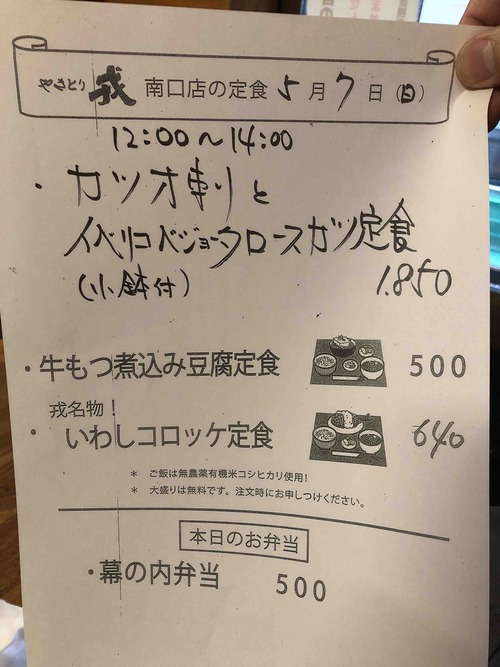 やきとり 戎 南口店の定食 5月7日(日)
12:00～14:00
・カツオ刺と
イベリコベジョータロースカツ定食
(小鉢付) 1.850
・牛もつ煮込み豆腐定食 500
戎名物！
・いわしコロッケ定食 640
＊ ご飯は無農薬有機米コシヒカリ使用！
＊ 大盛りは無料です。注文時にお申しつけください。
本日のお弁当
・幕の内弁当 500